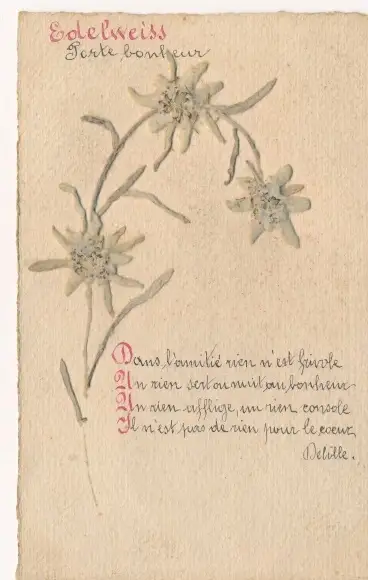 Edelweiss
Porte bonheur
Dans l'amitié rien n'est frivole
Un rien sert ou nuit au bonheur
Un rien afflige, un rien console
Il n'est pas de rien pour le coeur
Delille.